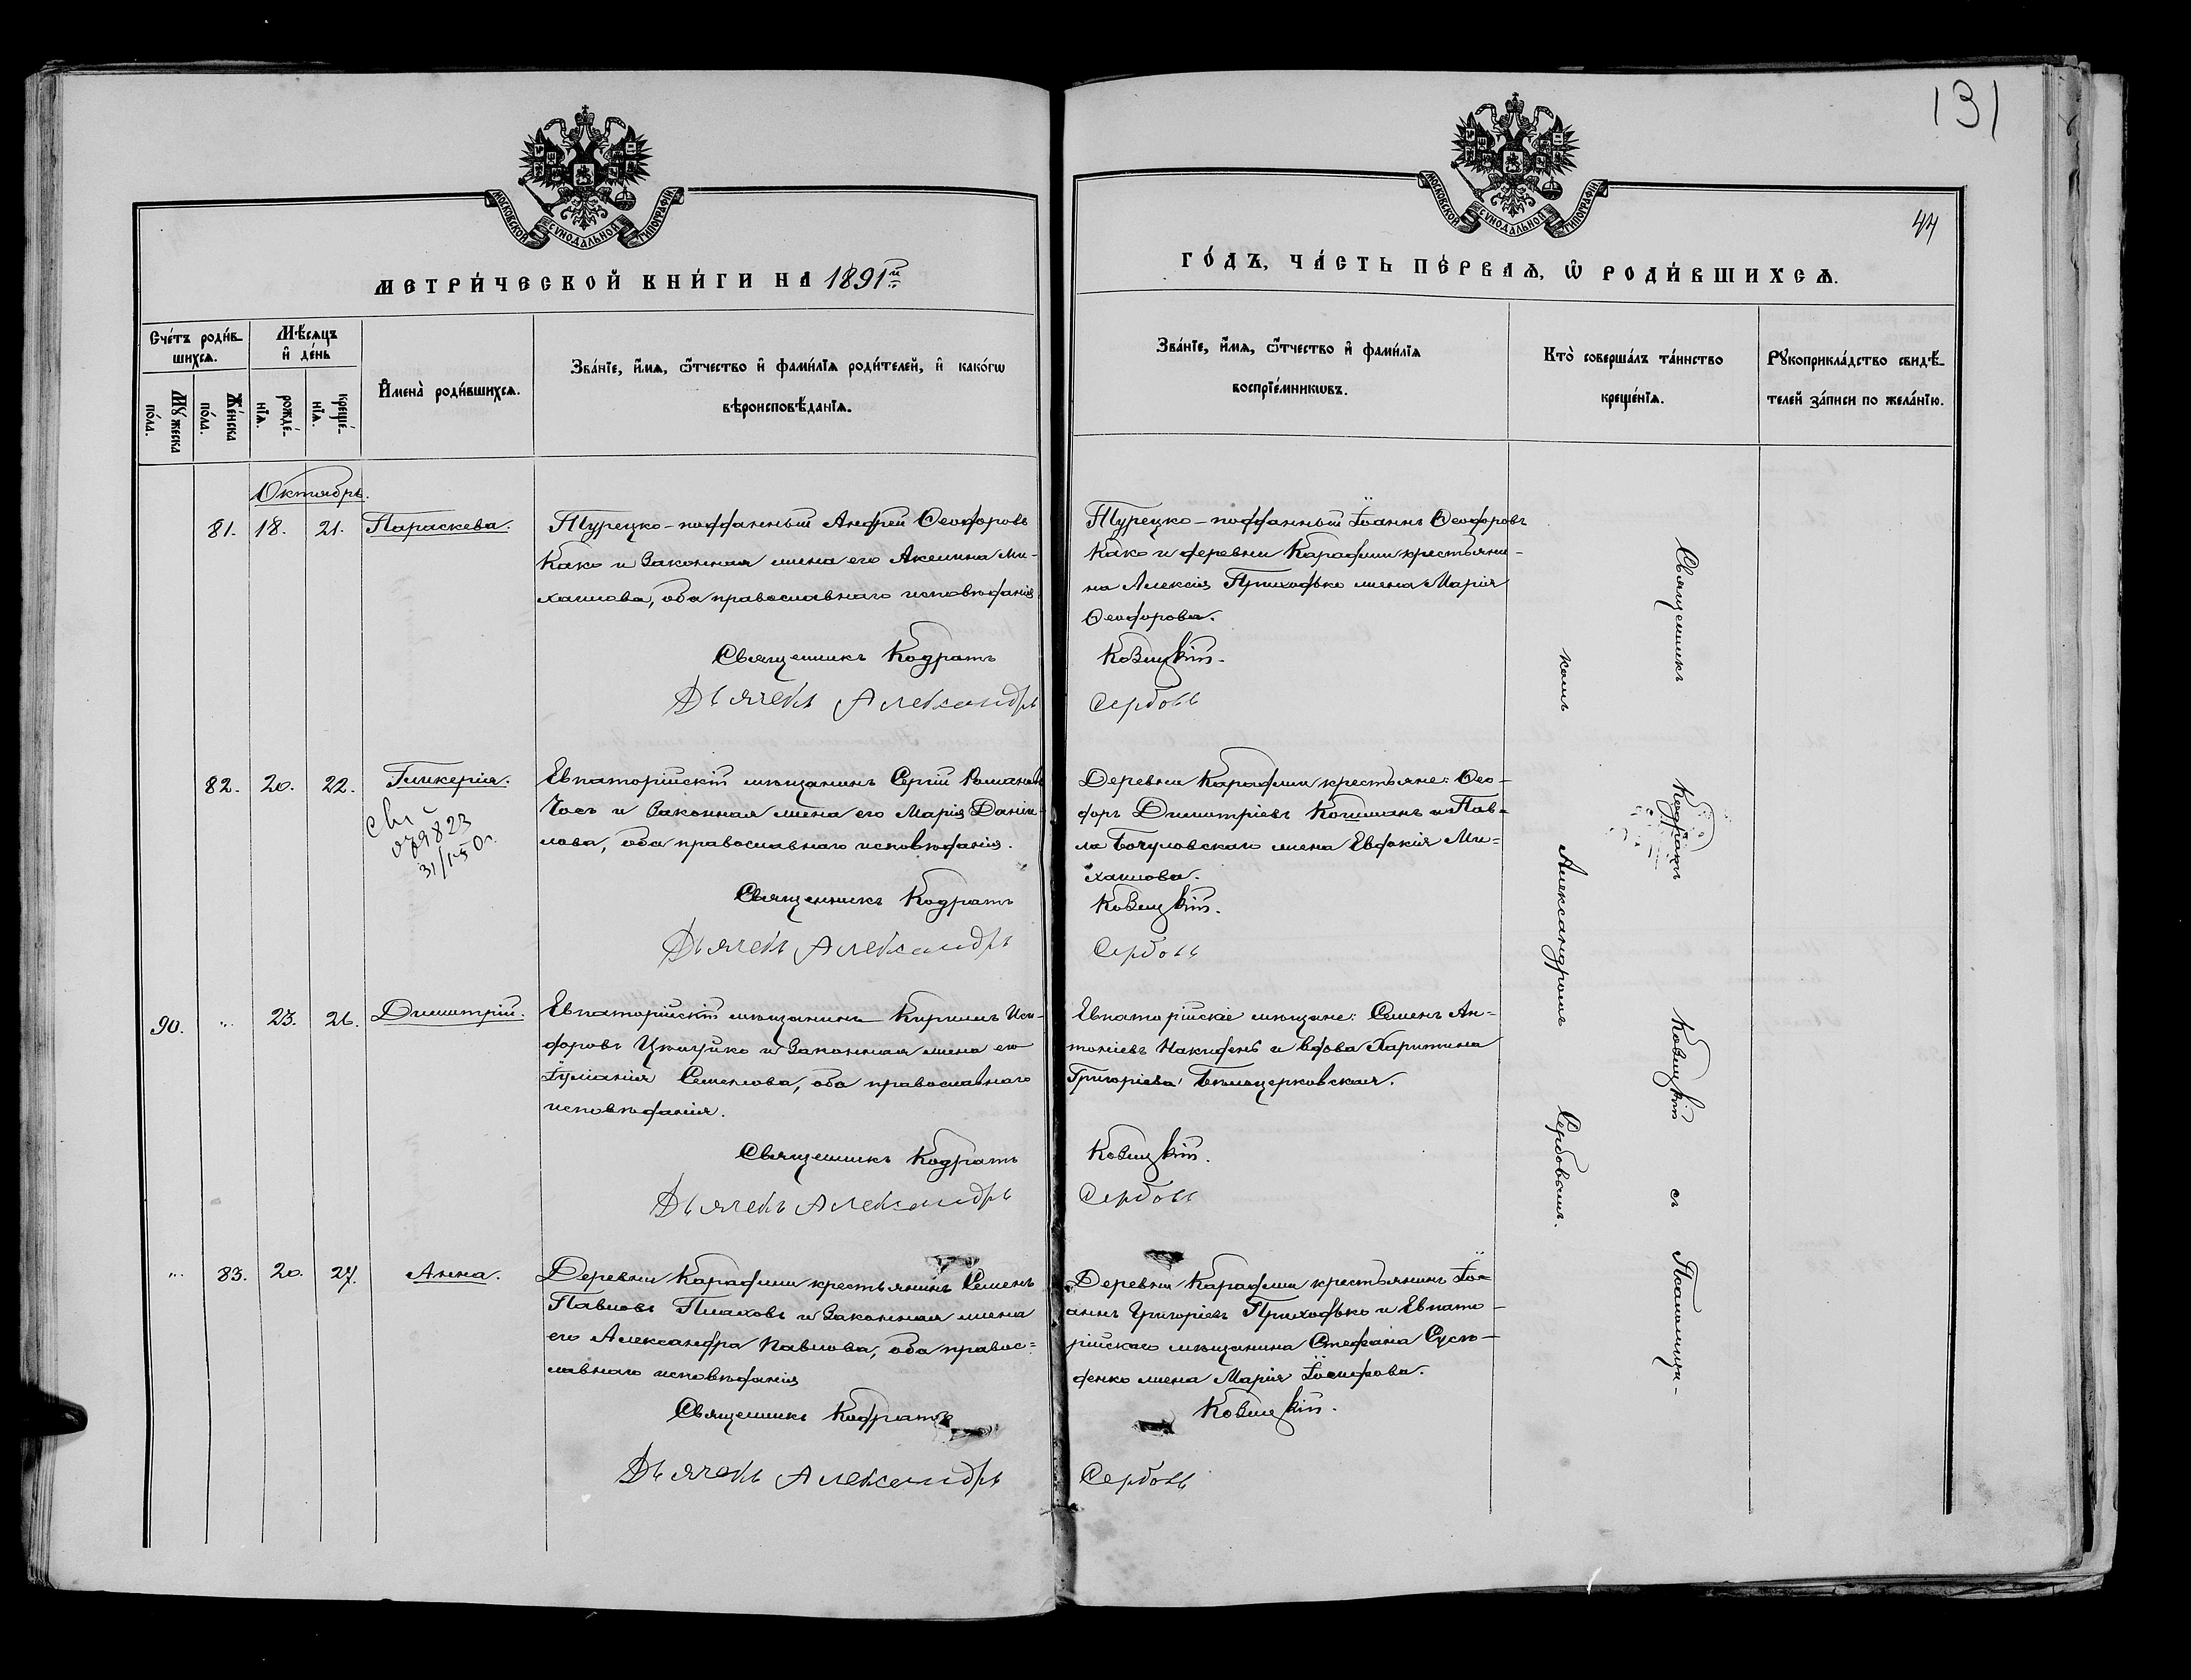 131
МОСКОВСКОЙ СѴНОДАЛЬНОЙ ТИПОГРАФІИ
МОСКОВСКОЙ СѴНОДАЛЬНОЙ ТИПОГРАФІИ
44
МЕТРИ́ЧЕСКОЙ КНИ́ГИ НА 1891й
ГО́ДЪ, ЧА́СТЬ ПЕ́РВАѦ, Ѡ҆ РОДИ́ВШИХСѦ.
Сче́тъ роди́в-
шихсѧ.
Мꙋ́жеска по́ла.
Же́нска по́ла.
Мѣ́сѧцъ и҆ де́нь
рожде́-нїѧ.
креще́-нїѧ.
И҆мена̀ роди́вшихсѧ.
Зва́нїе, и҆́мѧ, ѻ҆́тчество и҆ фамѝлїѧ роди́телей, и҆ како́гѡ
вѣроисповѣ́данїѧ.
Зва́нїе, и҆́мѧ, ѻ҆́тчество и҆ фамѝлїѧ
воспрїе́мникѡвъ.
Кто̀ соверша́лъ та́инство
креще́нїѧ.
Рꙋкоприкла́дство свидѣ́-
телей за́писи по жела́нїю.
Октябрь.
81. 18. 21. Параскева.
Турецко-подданный Андрей Ѳеодоровъ
Како и законная жена его Акилина Ми-
хаилова, оба православнаго исповѣданія
Священникъ Кодратъ
Дьячекъ Александръ
Турецко-подданный Іоаннъ Ѳеодоровъ
Како и деревни Караджи крестьяни-
на Алексія Приходько жена Марія
Ѳеодорова.
Ковицкій.
Сербовъ
82. 20. 22. Гликерія.
079823
Евпаторійскій мѣщанинъ Сергій Романовъ
Чосъ и законная жена его Марія Даніи-
лова, оба православнаго исповѣданія.
Священникъ Кодратъ
Дьячекъ Александръ
Деревни Караджи крестьяне: Ѳео-
доръ Димитріевъ Кошманъ и Пав-
ла Бочуловскаго жена Евдокія Ми=
хаилова.
Ковицкій.
Сербовъ
90. " 23. 26. Димитрій.
Евпаторійскій мѣщанинъ Кириллъ
форовъ и законная жена его
Іуліанія Семенова, оба православнаго
исповѣданія.
Священникъ Кодратъ
Дьячекъ Александръ
Евпаторійскіе мѣщане: Семенъ Ан=
тоніевъ и вдова Харитина
Григоріева Бѣлоцерковская.
Ковицкій.
Сербовъ
" 83. 20. 27. Анна.
Деревни Караджи крестьянинъ Семенъ
Павловъ Плаховъ и законная жена
его Александра Павлова, оба правос=
лавнаго исповѣданія
Священникъ Кодратъ
Дьячекъ Александръ
Деревни Караджи крестьянинъ Іо=
аннъ Григоріевъ Приходько и Евпато-
рійскаго мѣщанина Стефана
денко жена Марія Іосифова.
Ковицкій.
Сербовъ
Священникъ Кодратъ Ковицкій съ Псаломщи-
комъ Александромъ Сербовымъ.